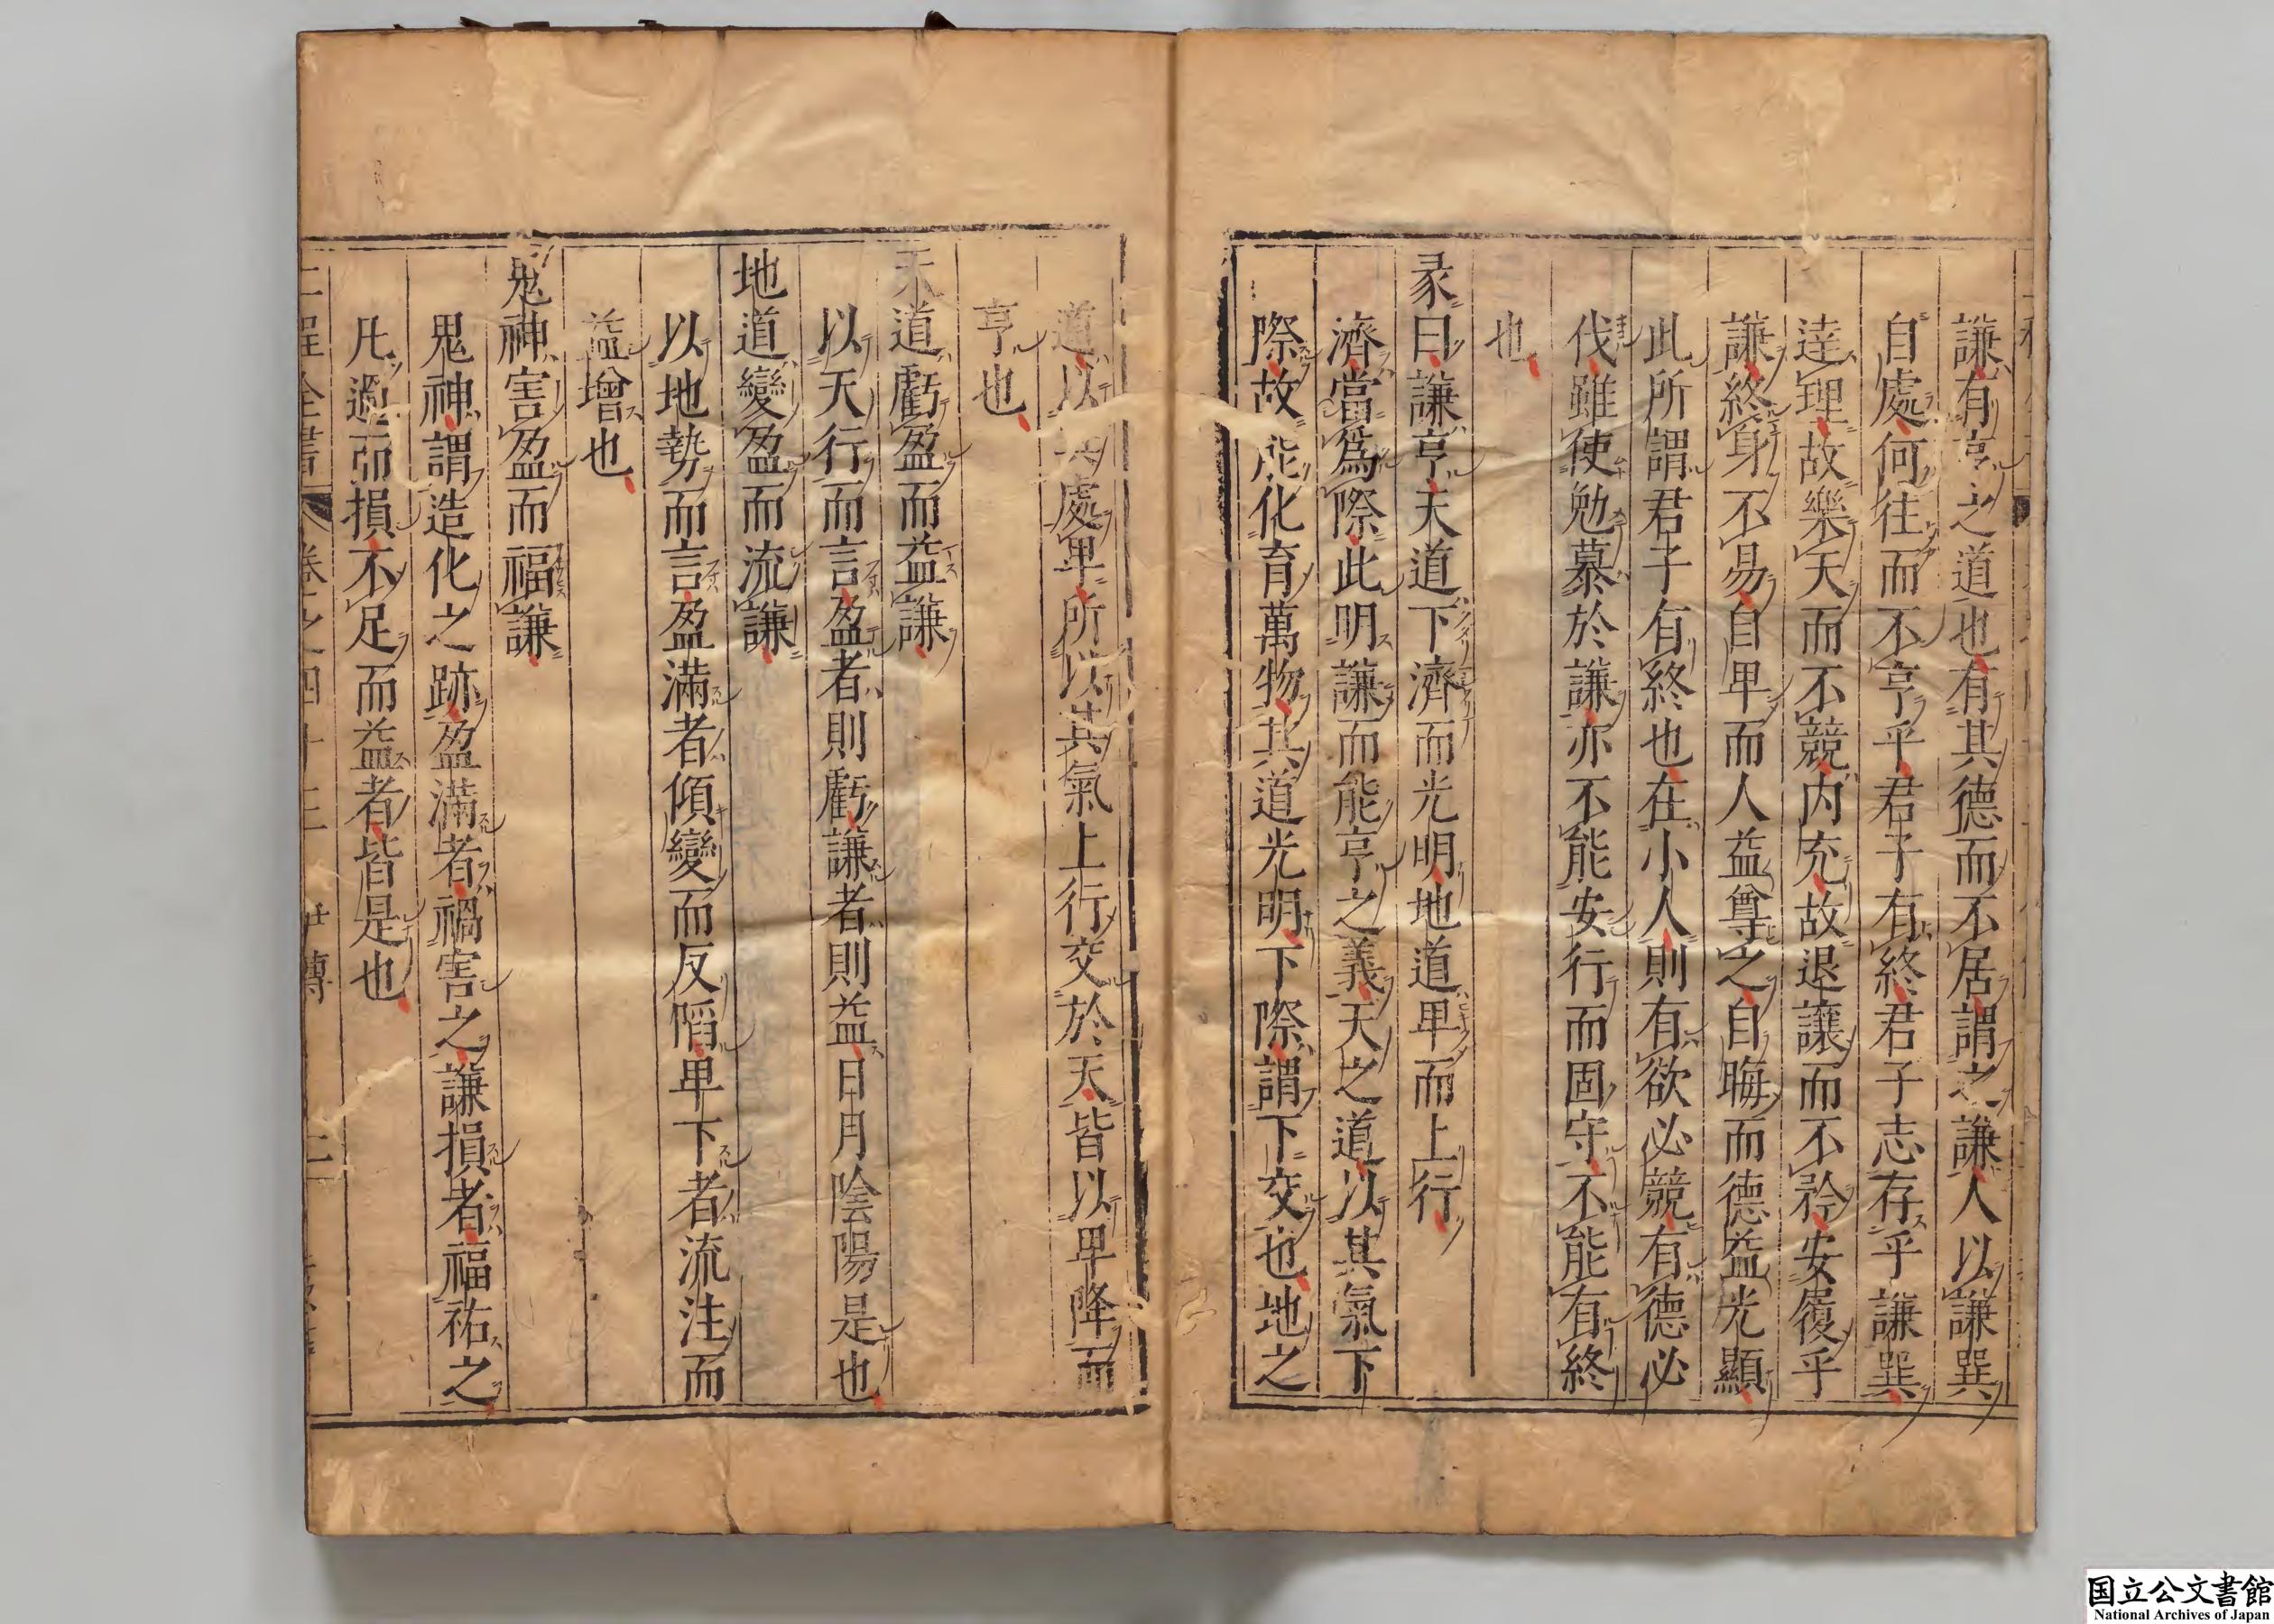 謙有亨之道也有其德而不居謂之謙人以謙巽
自處何往而不亨乎君子有終君子志存乎謙巽
達理故樂天而不競内充故退讓而不矜安履乎
謙終身不易自卑而人益尊之自晦而德益光顯
此所謂君子有終也在小人則有欲必競有德必
伐雖使勉慕於謙亦不能安行而固守不能有終
也
彖曰謙亨天道下濟而光明地道卑而上行
濟當爲際此明謙而能亨之義天之道以其氣下
際故能化育萬物其道光明下際謂下交也地之
道以其處卑所以其氣上行交於天皆以卑降而
亨也
天道虧盈而益謙
以天行而言盈者則虧謙者則益日月陰陽是也
地道變盈而流謙
以地勢而言盈滿者傾變而反陷卑下者流注而
益增也
鬼神害盈而福謙
鬼神謂造化之跡盈滿者禍害之謙損者福祐之
凡過而損不足而益者皆是也
二程全書 卷之四十三 尹傳 二
国立公文書館
National Archives of Japan